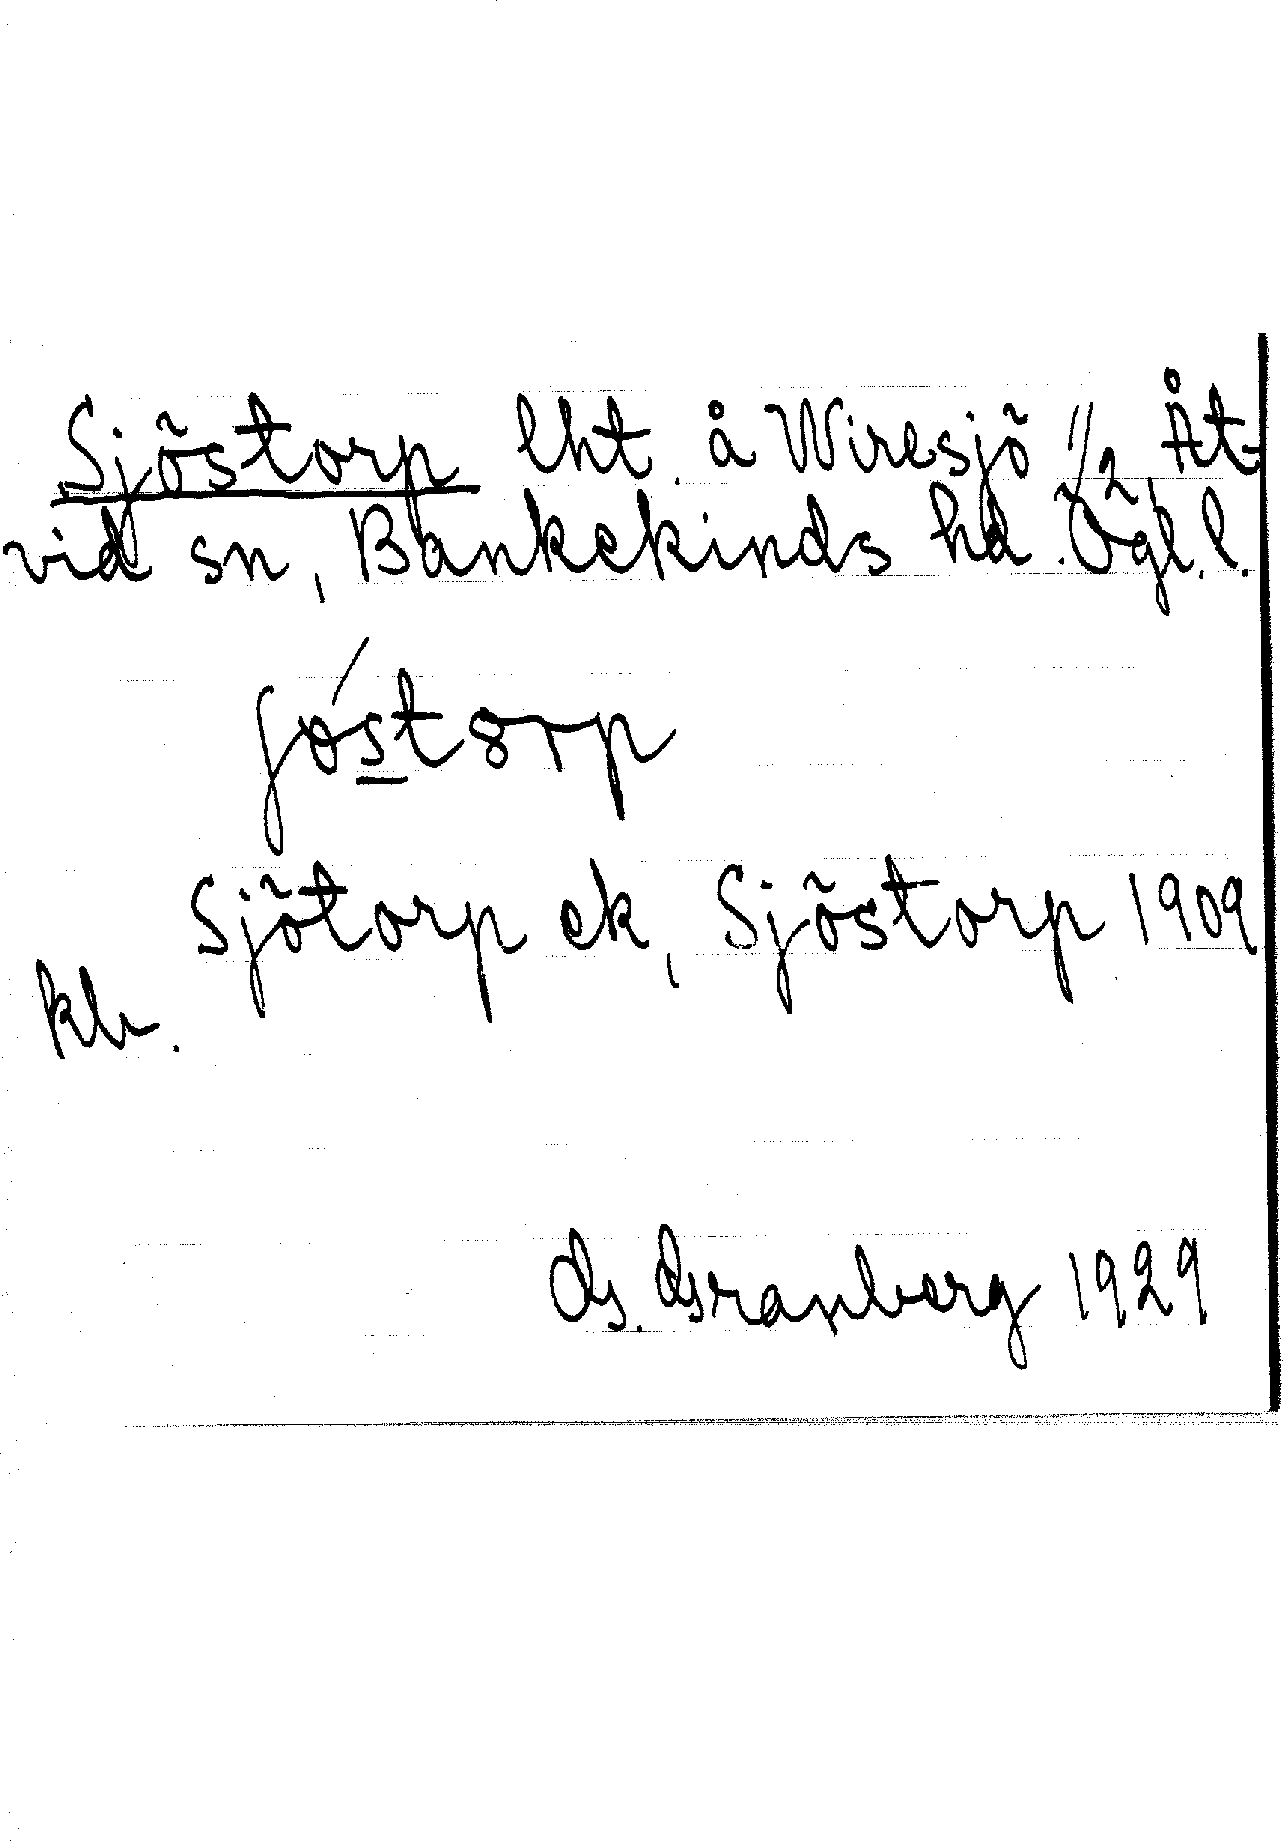 Sjöstorp lht å Wiresjö 1/2 Åt-
vid sn, Bankekinds hd Ögl. l.
Sjötorp ek, Sjöstorp 1909
kb.
G. Granberg 1929